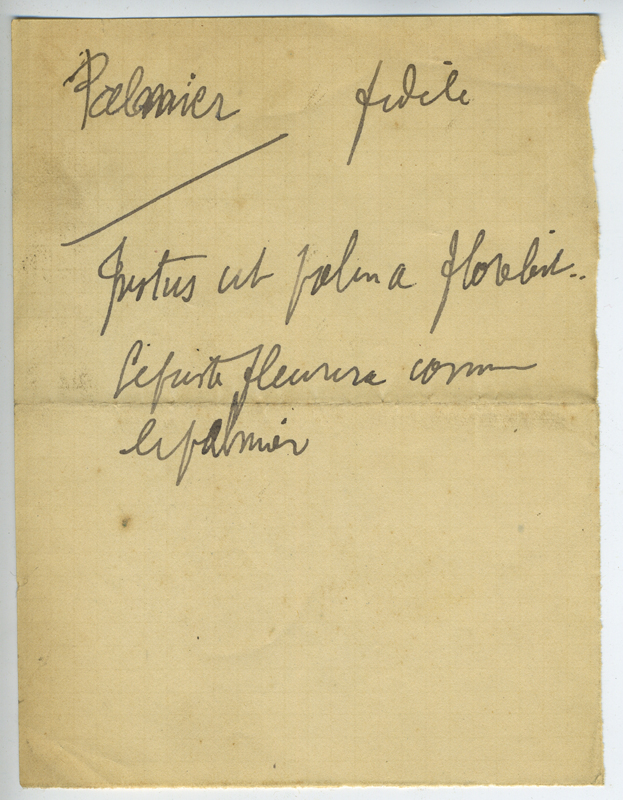 Palmier fidèle
Justus ut palma florebit..
Le juste fleurira comme
le palmier